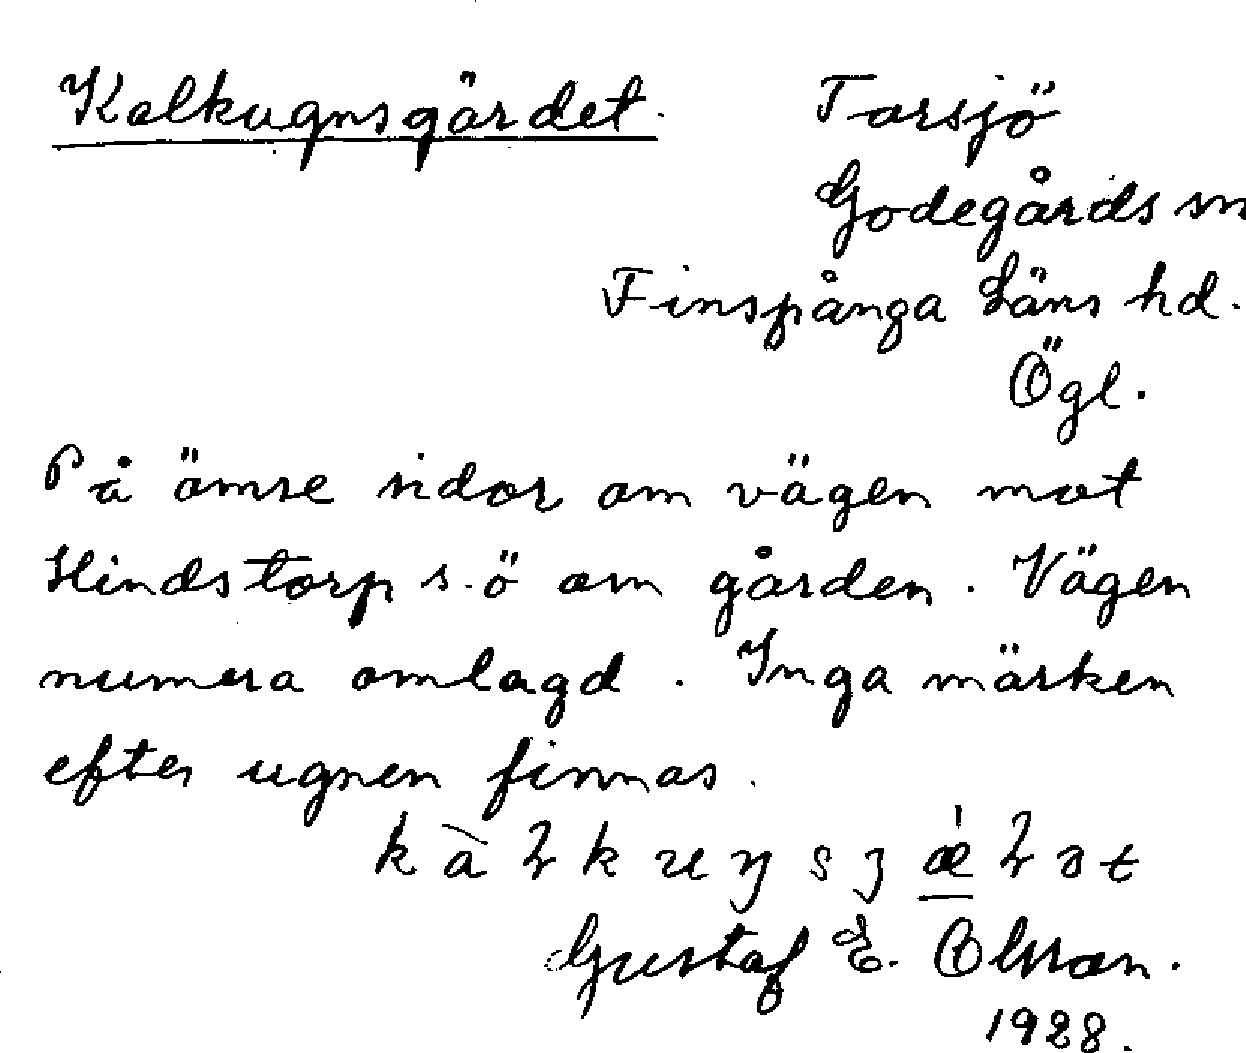 Kalkugnsgärdet. Torsjö
Godegårds sn
Finspånga Läns hd.
Ögl.
På ömse sidor om vägen mot
Hindstorp s.ö om gården. Vägen
numera omlagd. Inga märken
efter ugnen finnas.
Gustaf E. Olsson.
1928.